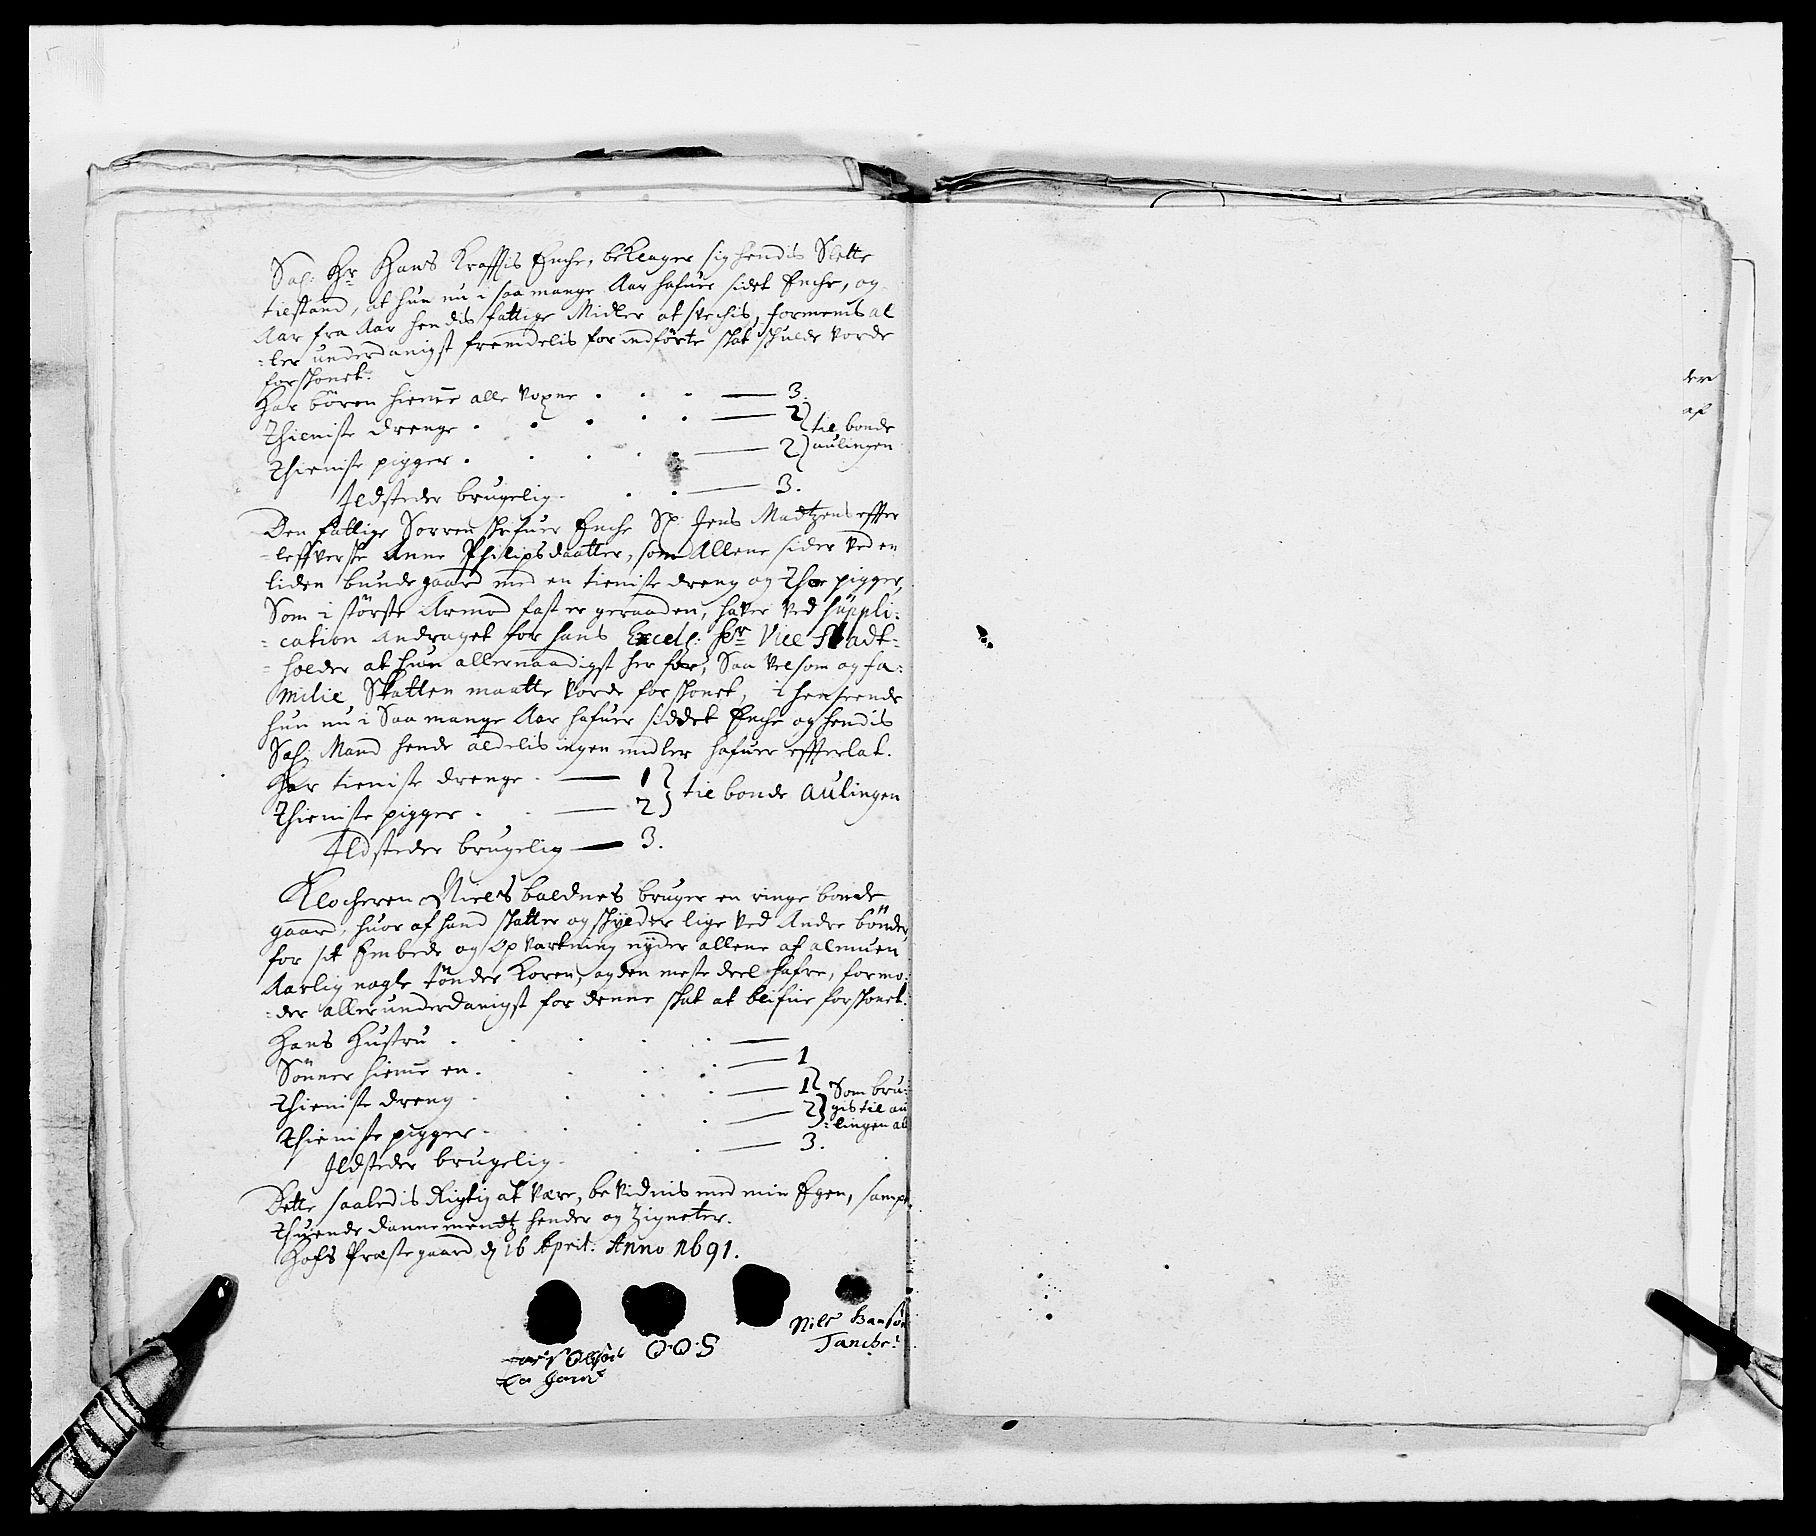 Sal: Hr Hans Kraffts Enche, beklager sig hendis Slette
tilstand, at hun nu i saa mange Aar hafuer sidet Enche, og
Aar fra Aar hendis fattige Midler at svechis, formenis al
=ler underdanigst fremdelis for indförte skat skulde vorde
forskonet.
Har börn hieme alle voxne . . . — 3.
Thieniste drenge . . . . — 2 } til bonde
Thieniste pigger . . . . — 2 } aulingen
Ildsteder brugelig . . . — 3.
Den fattige Sorrenskrifuer Enche Sl: Jens Madtzens effter
=leffverske Anne Philipsdaatter, som Allene sider ved en
liden bunde gaard med en tieniste dreng og Thoe pigger,
Som i störste Armod fast er geraaden, haver ved süppli:
=cation Andraget for hans Excell: Hr Vice Stadt=
=holder at hun allernaadigst her for, Saa velsom og fa=
milie Skatten maatte vorde forskonet, i henseende
hun nu i Saa mange Aar hafuer siddet Enche og hendis
Sal: Mand hende aldelis ingen midler hafuer effterlat.
Har tieniste drenge . — 1 } til bonde aulingen
Thieniste pigger . . — 2 }
Ildsteder brugelig — 3.
Klocheren Niels baldnes bruger en ringe bonde
gaard, huor af hand skatter og skylder lige ved Andre bönder,
for sit Embede og opvartning nyder allene af almuen
Aarlig nogle tönder Koren, og den meste deel hafre, formo:
=der allerunderdanigst for denne skat at blifue forskonet.
Hans Hustru . . . . . —
Sönner hieme en . . . . — 1
Thieniste dreng . . . . — 1 } Som bru:
Thieniste pigger . . . . — 2 } gis til au
=lingen al
Ildsteder brugelig . . . — 3.
Dette saaledis Rigtig at være, bevidnis med min Egen, sampt
thuende dannemendtz hender og Zigneter.
Hofs Præstegaard d 16 April: Anno 1691.
Nils Hansön
Tanche:
O.O.S
Olsön
den
af